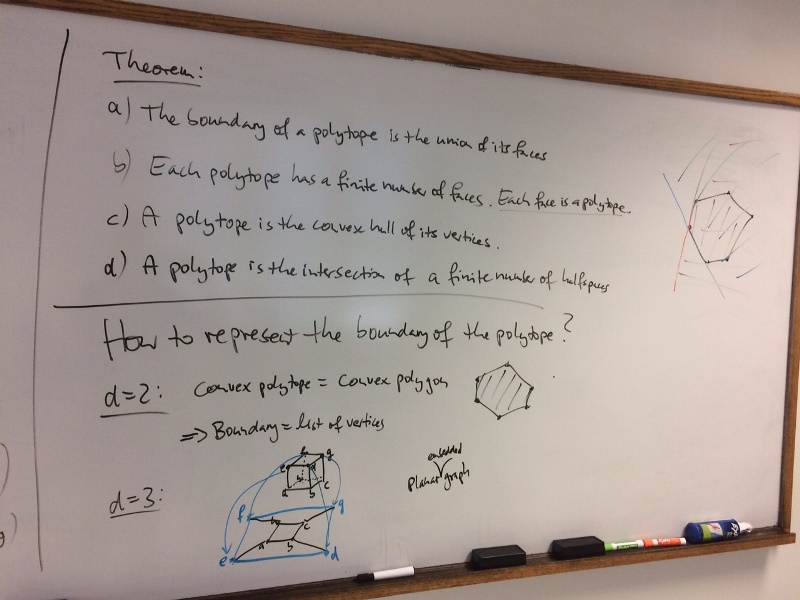 Theorem:
a) The boundary of a polytope is the union of its faces
b) Each polytope has a finite number of faces. Each face is a polytope.
c) A polytope is the convex hull of its vertices.
d) A polytope is the intersection of a finite number of halfspaces
How to represent the boundary of the polytope?
d=2: Convex polytope = Convex polygon
=> Boundary = list of vertices
d=3:
embedded
Planar graph
e d g
a b c
f g
c
a b
e d